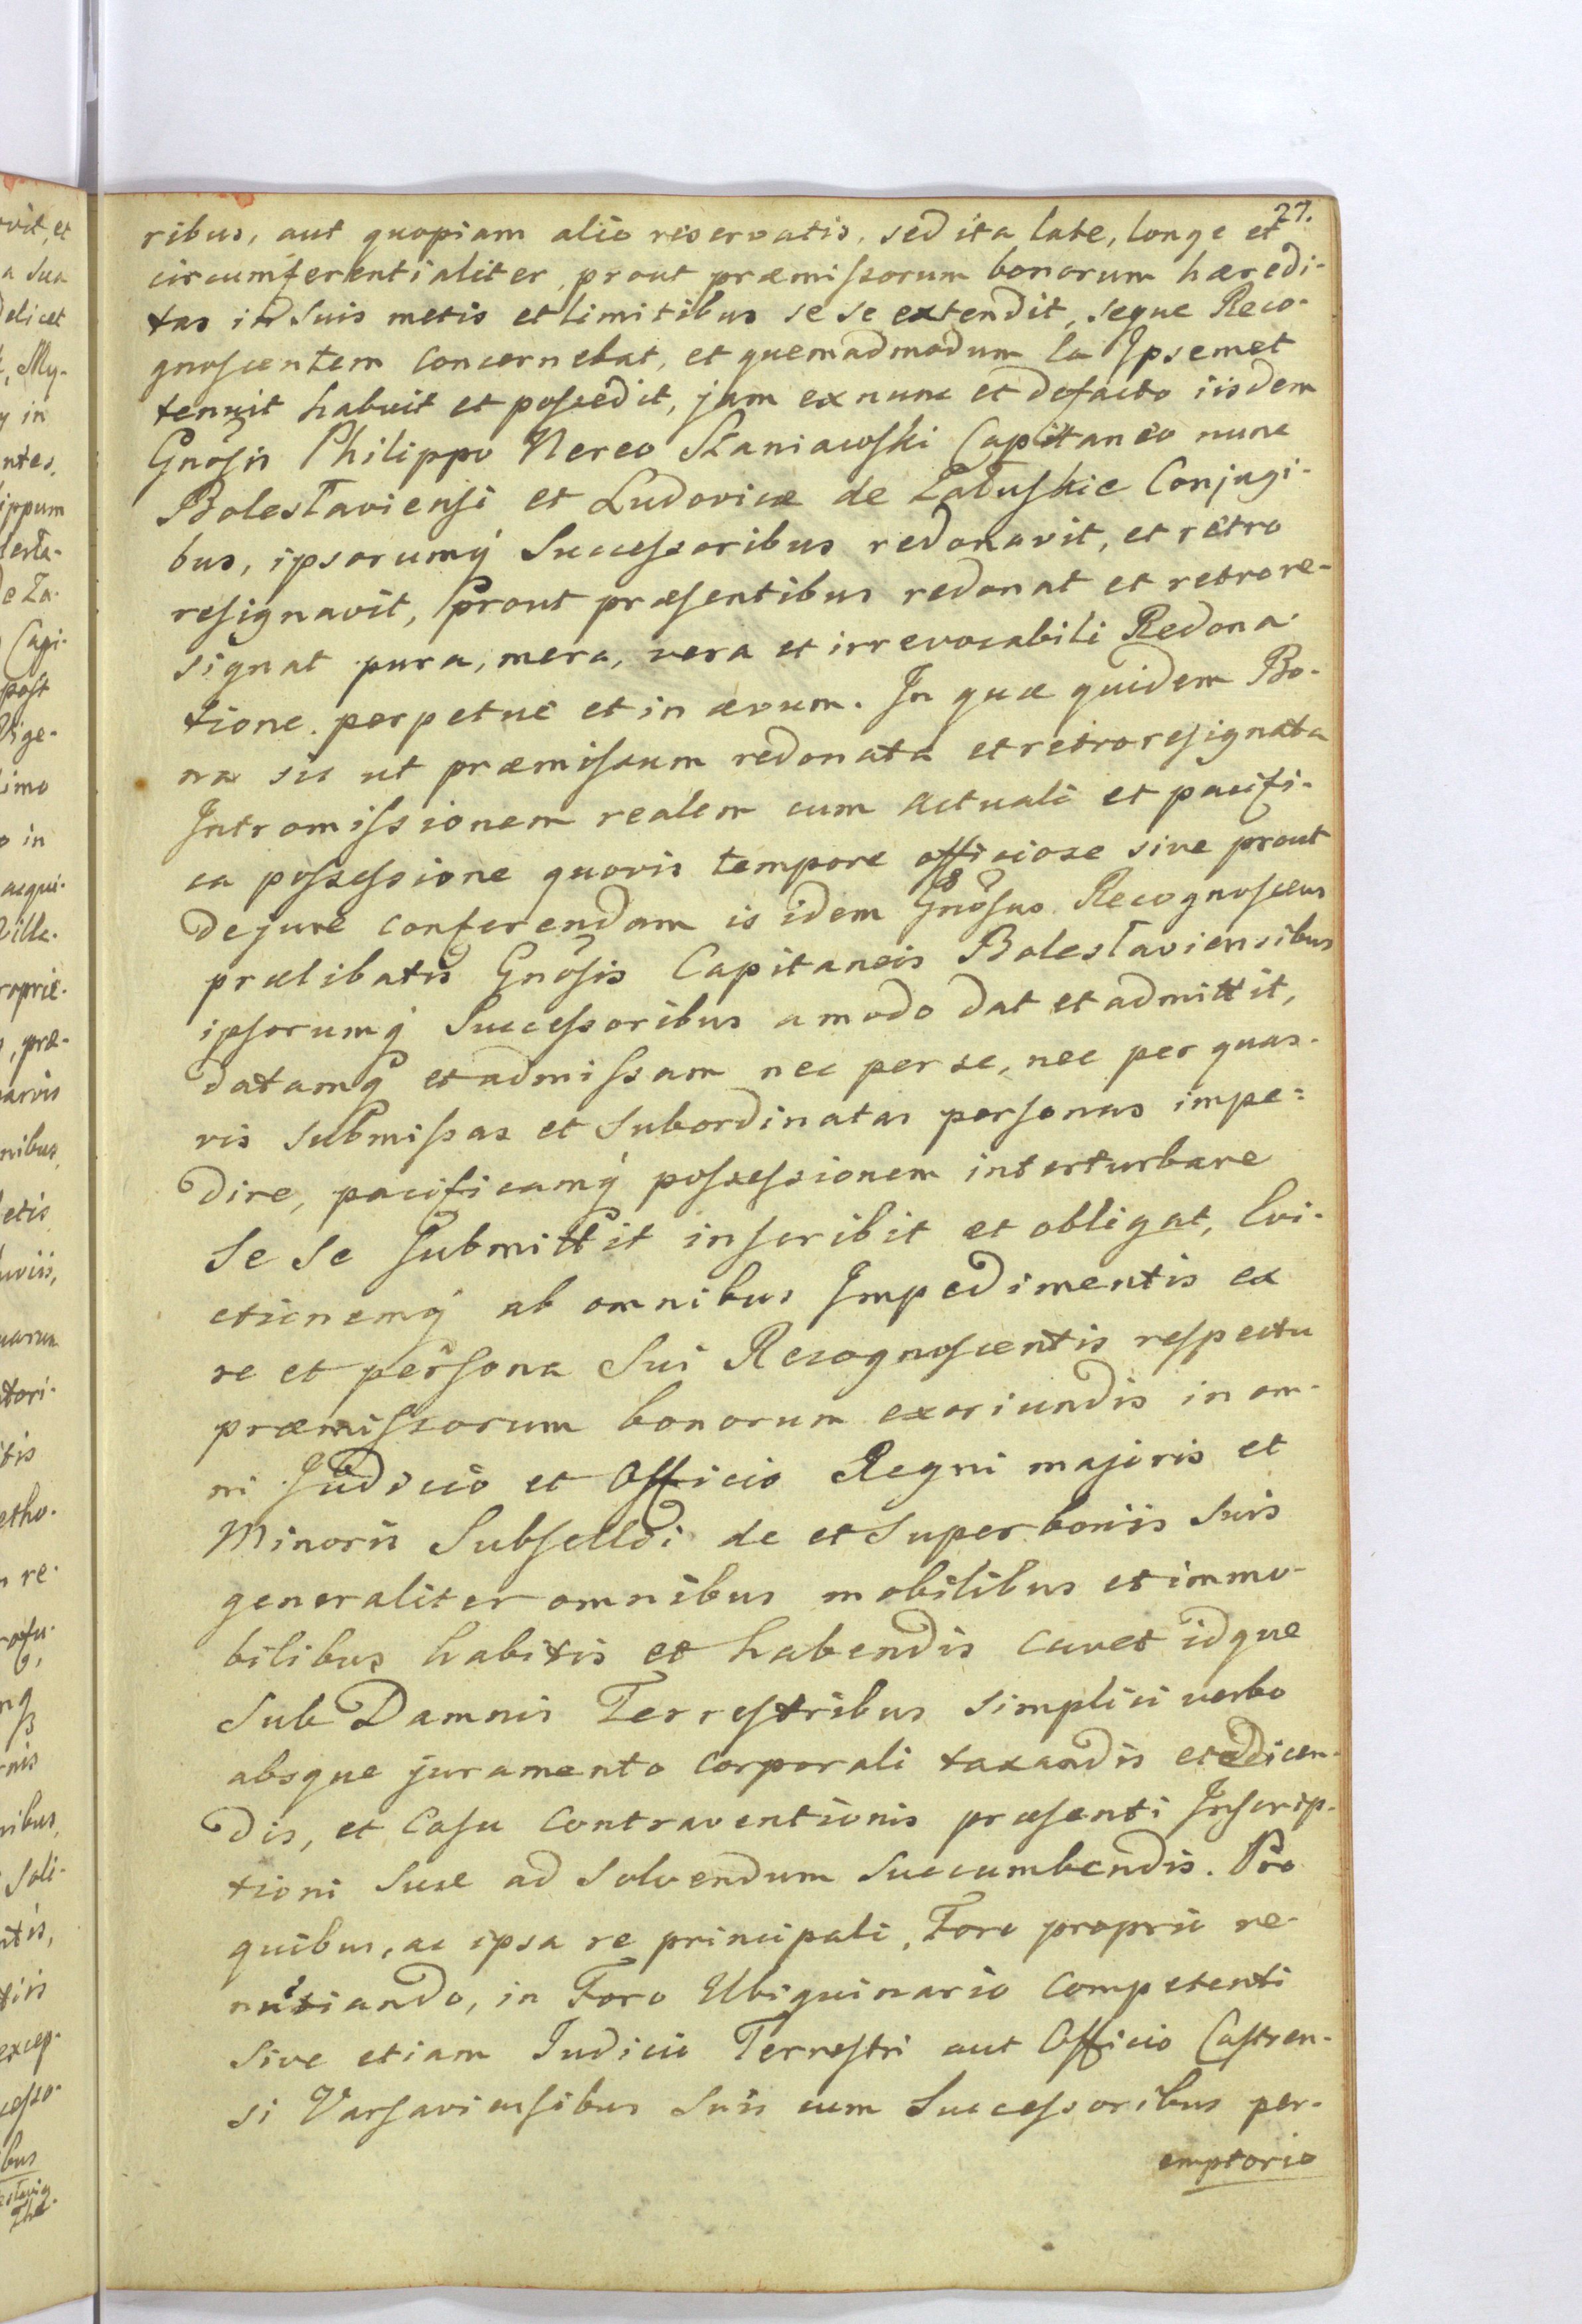 27.
ribus, aut quopiam alio reservatis, sed ita late, longe et
circumferentialiter, prout præmissorum bonorum hæredi-
tas in suis metis et limitibus se se extendit, seque Reco-
gnoscentem concernebat, et quemadmodum ea Ipsemet
tenuit habuit et possedit, jam ex nunc et defacto iisdem
Gnosis Philippo Nereo Szaniawski Capitaneo nunc
Bolesłaviensi et Ludovicæ de Załuskie Conjugi-
bus, ipsorumq́ Successoribus redonavit, et retro
resignavit, prout præsentibus redonat et retrore-
signat pura, mera, vera et irrevocabili Redona-
tione. perpetue et in ævum. In quæ quidem Bo-
na sic ut præmissum redonata et retroresignata
Intromissionem realem cum actuali et pacifi-
ca possessione quovis tempore officiose sive prout
de jure conferendam is idem Gnosus Recognoscens
prælibatis Gnosis Capitaneis Bolesłaviensibus
ipsorumq́ Successoribus amodo dat et admittit,
datamq́ et admissam nec per se, nec per quas-
vis submissas et subordinatas personas impe=
dire, pacificamq́ possessionem interturbare
se se submittit inscribit et obligat, Evi-
ctionemq́ ab omnibus Impedimentis ex
re et persona sui Recognoscentis respectu
præmissorum bonorum exoriundis in om-
ni Judicio et Officio Regni majoris et
Minoris Subsellii de et super bonis suis
generaliter omnibus mobilibus et immo-
bilibus habitis et habendis cavet idque
sub Damnis Terrestribus simplici verbo
absque juramento corporali taxandis et edicen-
dis, et Casu Contraventionis præsenti Inscrip-
tioni suæ ad solvendum succumbendis. Pro
quibus, ac ipsa re principali, Foro proprio re-
nutiando, in Foro Ubiquinario competenti
sive etiam Judicio Terrestri aut Officio Castren-
si Varsaviensibus suis cum Successoribus per-
emptorio